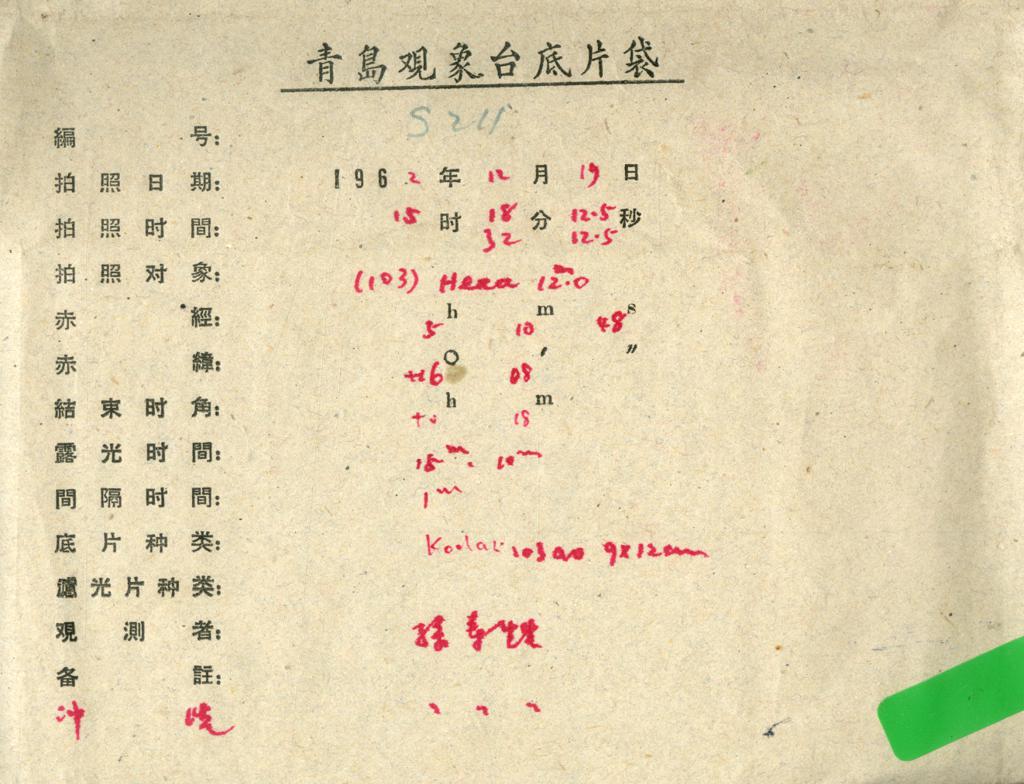 青島观象台底片袋
編号: S 211
拍照日期: 1962年12月19日
拍照时間: 15时18分12.5秒
32 12.5
拍照对象: (103) Hera 12ᵐ.0
赤經: 5h 10m 48s
赤緯: +16° 08′ ″
結束时角: +0h 18m
露光时間: 15ᵐ. 10ᵐ
間隔时間: 1ᵐ
底片种类: Kodak 103aO 9x12cm
濾光片种类:
观測者: 孫寿
备註:
冲洗 〃 〃 〃